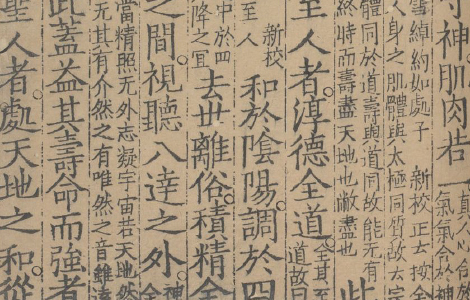 守神肌肉若一
真人心合於
氣氣合於神
雪綽約如處子 新校正云按全
人身之肌體與太極同質故云宗
體同於道壽與道同故能无有
終時而壽盡天地也敝盡也
此
至人者。淳德全道
全其至
道故曰
新校
至人
和於陰陽。調於四
中於四
降之宜
去世離俗。積精全
之間。視聽八達之外。
神
全
當精照无外志凝宇宙若天地然
无其有介然之有唯然之音雖遠
此蓋益其壽命而強者
聖人者。處天地之和。從